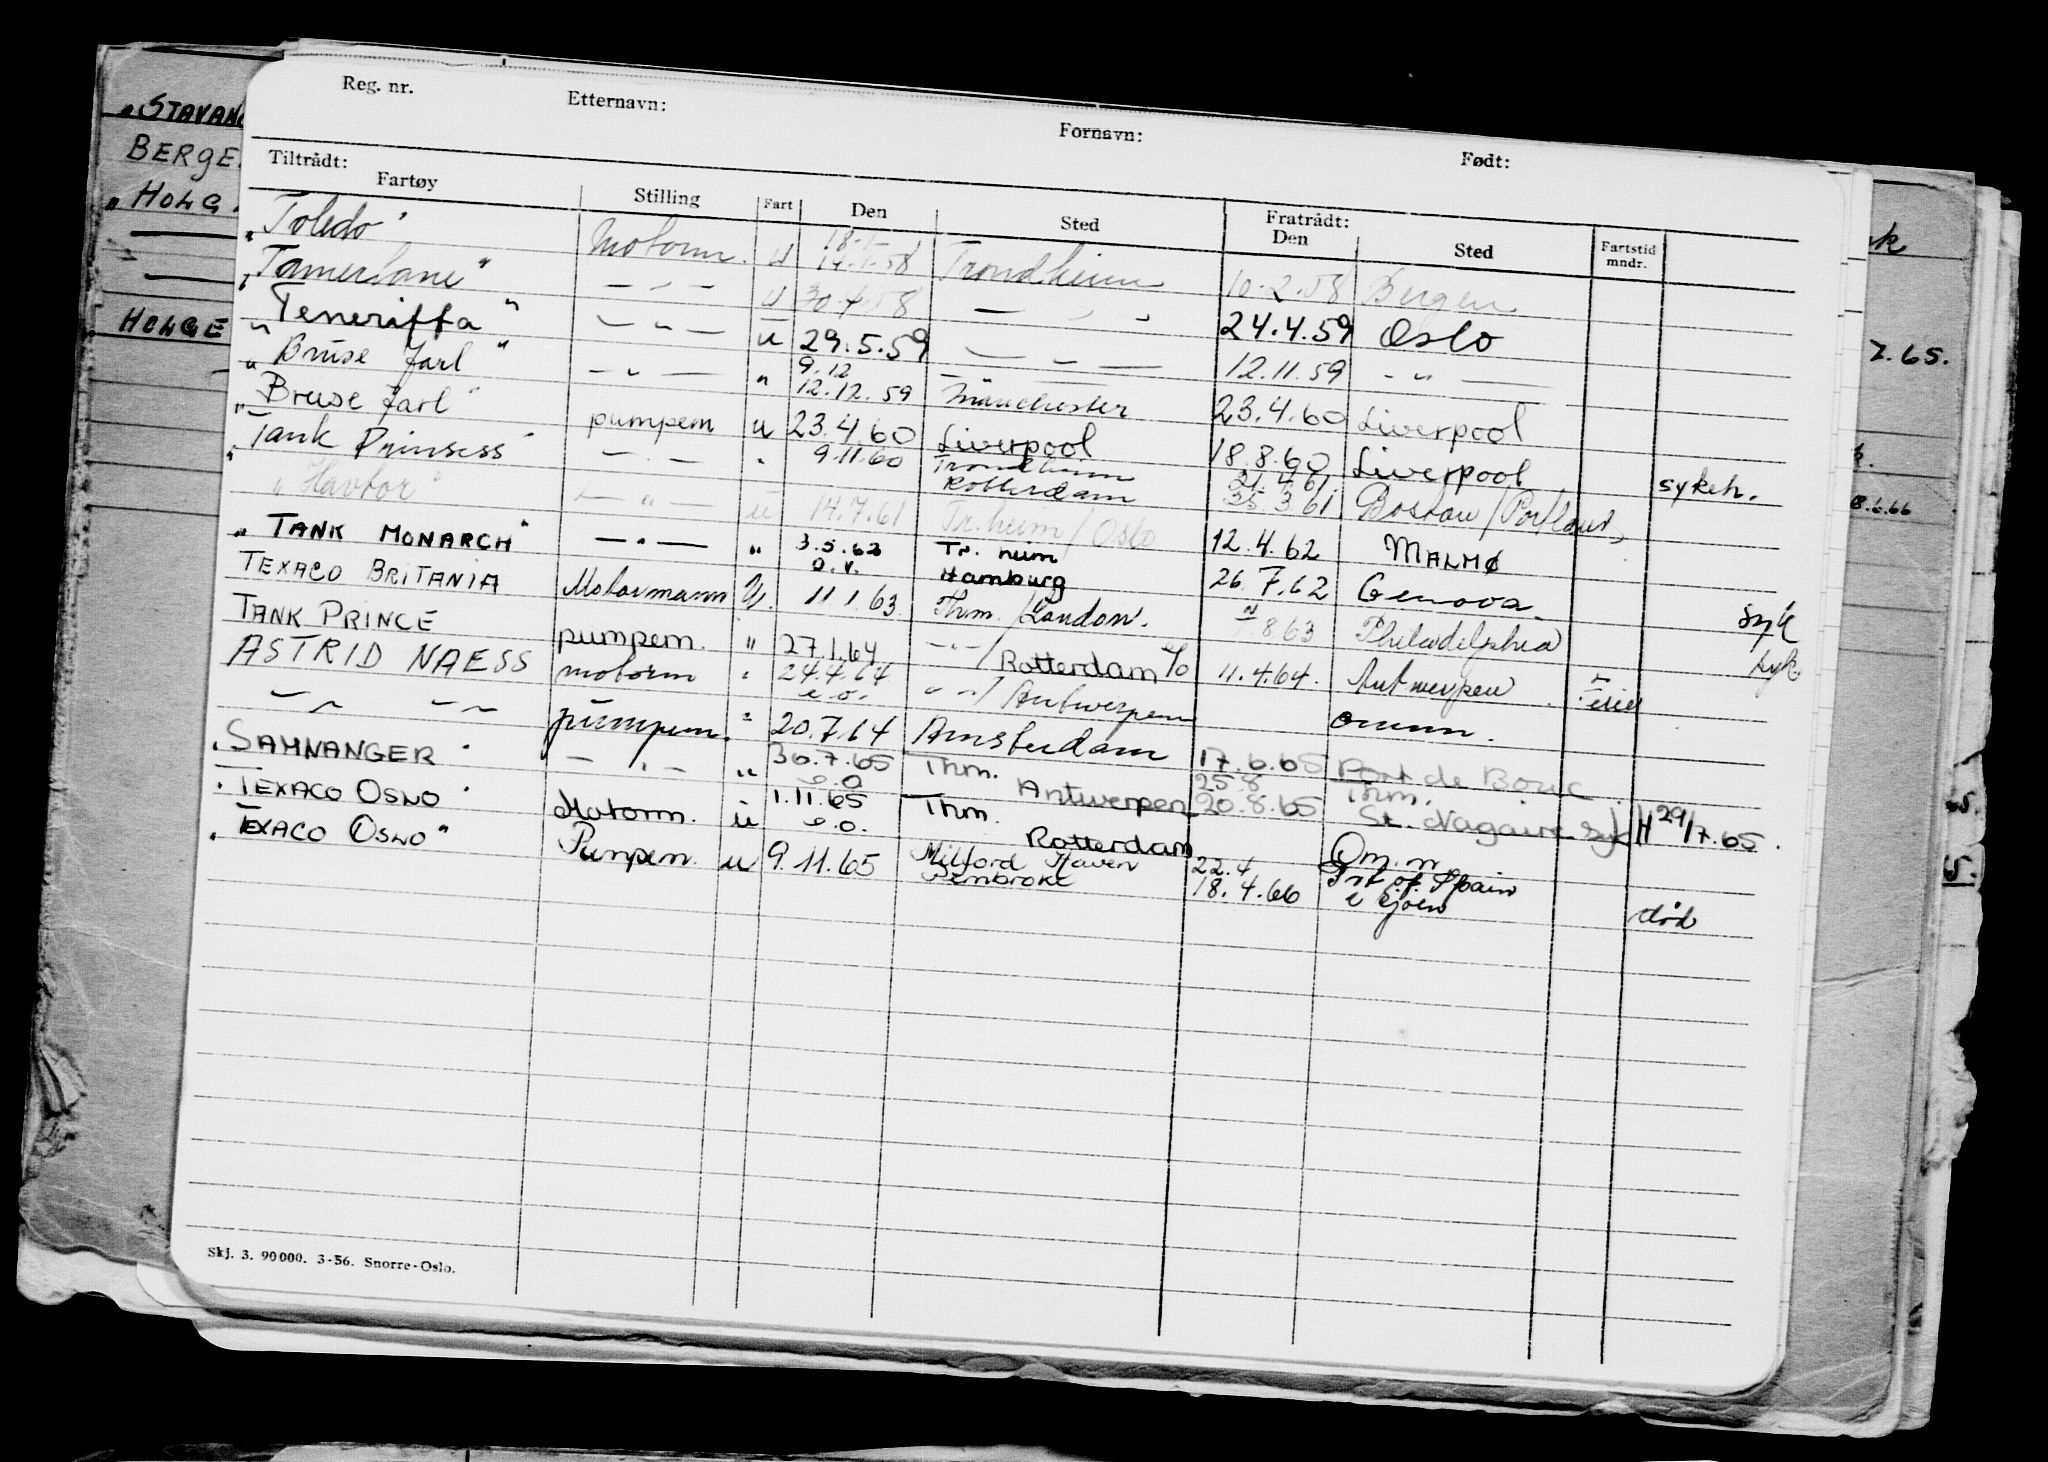 Reg. nr. Etternavn: Fornavn: Født:
Tiltrådt: Fratrådt:
Fartøy Stilling Fart Den Sted Den Sted Fartstid mndr.
"STAVANG
BERGE
"HOLG
HOLGE
"Toledo" Motorm. u 18.1. 14.1.58 Trondheim 10.2.58 Bergen
"Tamerlane" — " — u 30.4.58 — " — 24.4.59 Oslo
"Teneriffa" — " — u 29.5.59 — " — 12.11.59 — " —
"Bruse Jarl" — " — " 9.12 12.12.59 Manchester 23.4.60 Liverpool
"Bruse Jarl" pumpem u 23.4.60 Liverpool 18.8.60 Liverpool sykeh.
"Tank Prinsess" — " — " 9.11.60 Trondheim Rotterdam 21.4.61 25.3.61 Boston/Portland,
"Havtor" — " — u 14.7.61 Tr.heim/Oslo 12.4.62 MALMØ
"TANK MONARCH" — " — " 3.5.62 o.v. Tr. heim Hamburg 26.7.62 Genova syk
TEXACO BRITANIA Motormann U. 11.1.63 Thm./London. 8.63 Philadelphia syk.
TANK PRINCE pumpem. " 27.1.64 — " —/Rotterdam 11.4.64. Antwerpen
ASTRID NAESS motorm " 24.4.64 e.o. " "/Antwerpen omm.
— " — — " — pumpem. " 20.7.64 Amsterdam 17.6.65 Port de Bouc
"SAMNANGER" — " — " 30.7.65 e.o Thm. Antwerpen 25.8 20.8.65 Thm. St. Nazaire syk H 29/7.65.
"TEXACO OSLO" Motorm. u 1.11.65 e.o. Thm. Rotterdam Om.m
"TEXACO OSLO" Pumpem. u 9.11.65 Milford Haven Pembroke 22.4 18.4.66 Prt of Spain i sjøen død
7.65.
8.6.66
Skj. 3. 90000. 3-56. Snorre-Oslo.